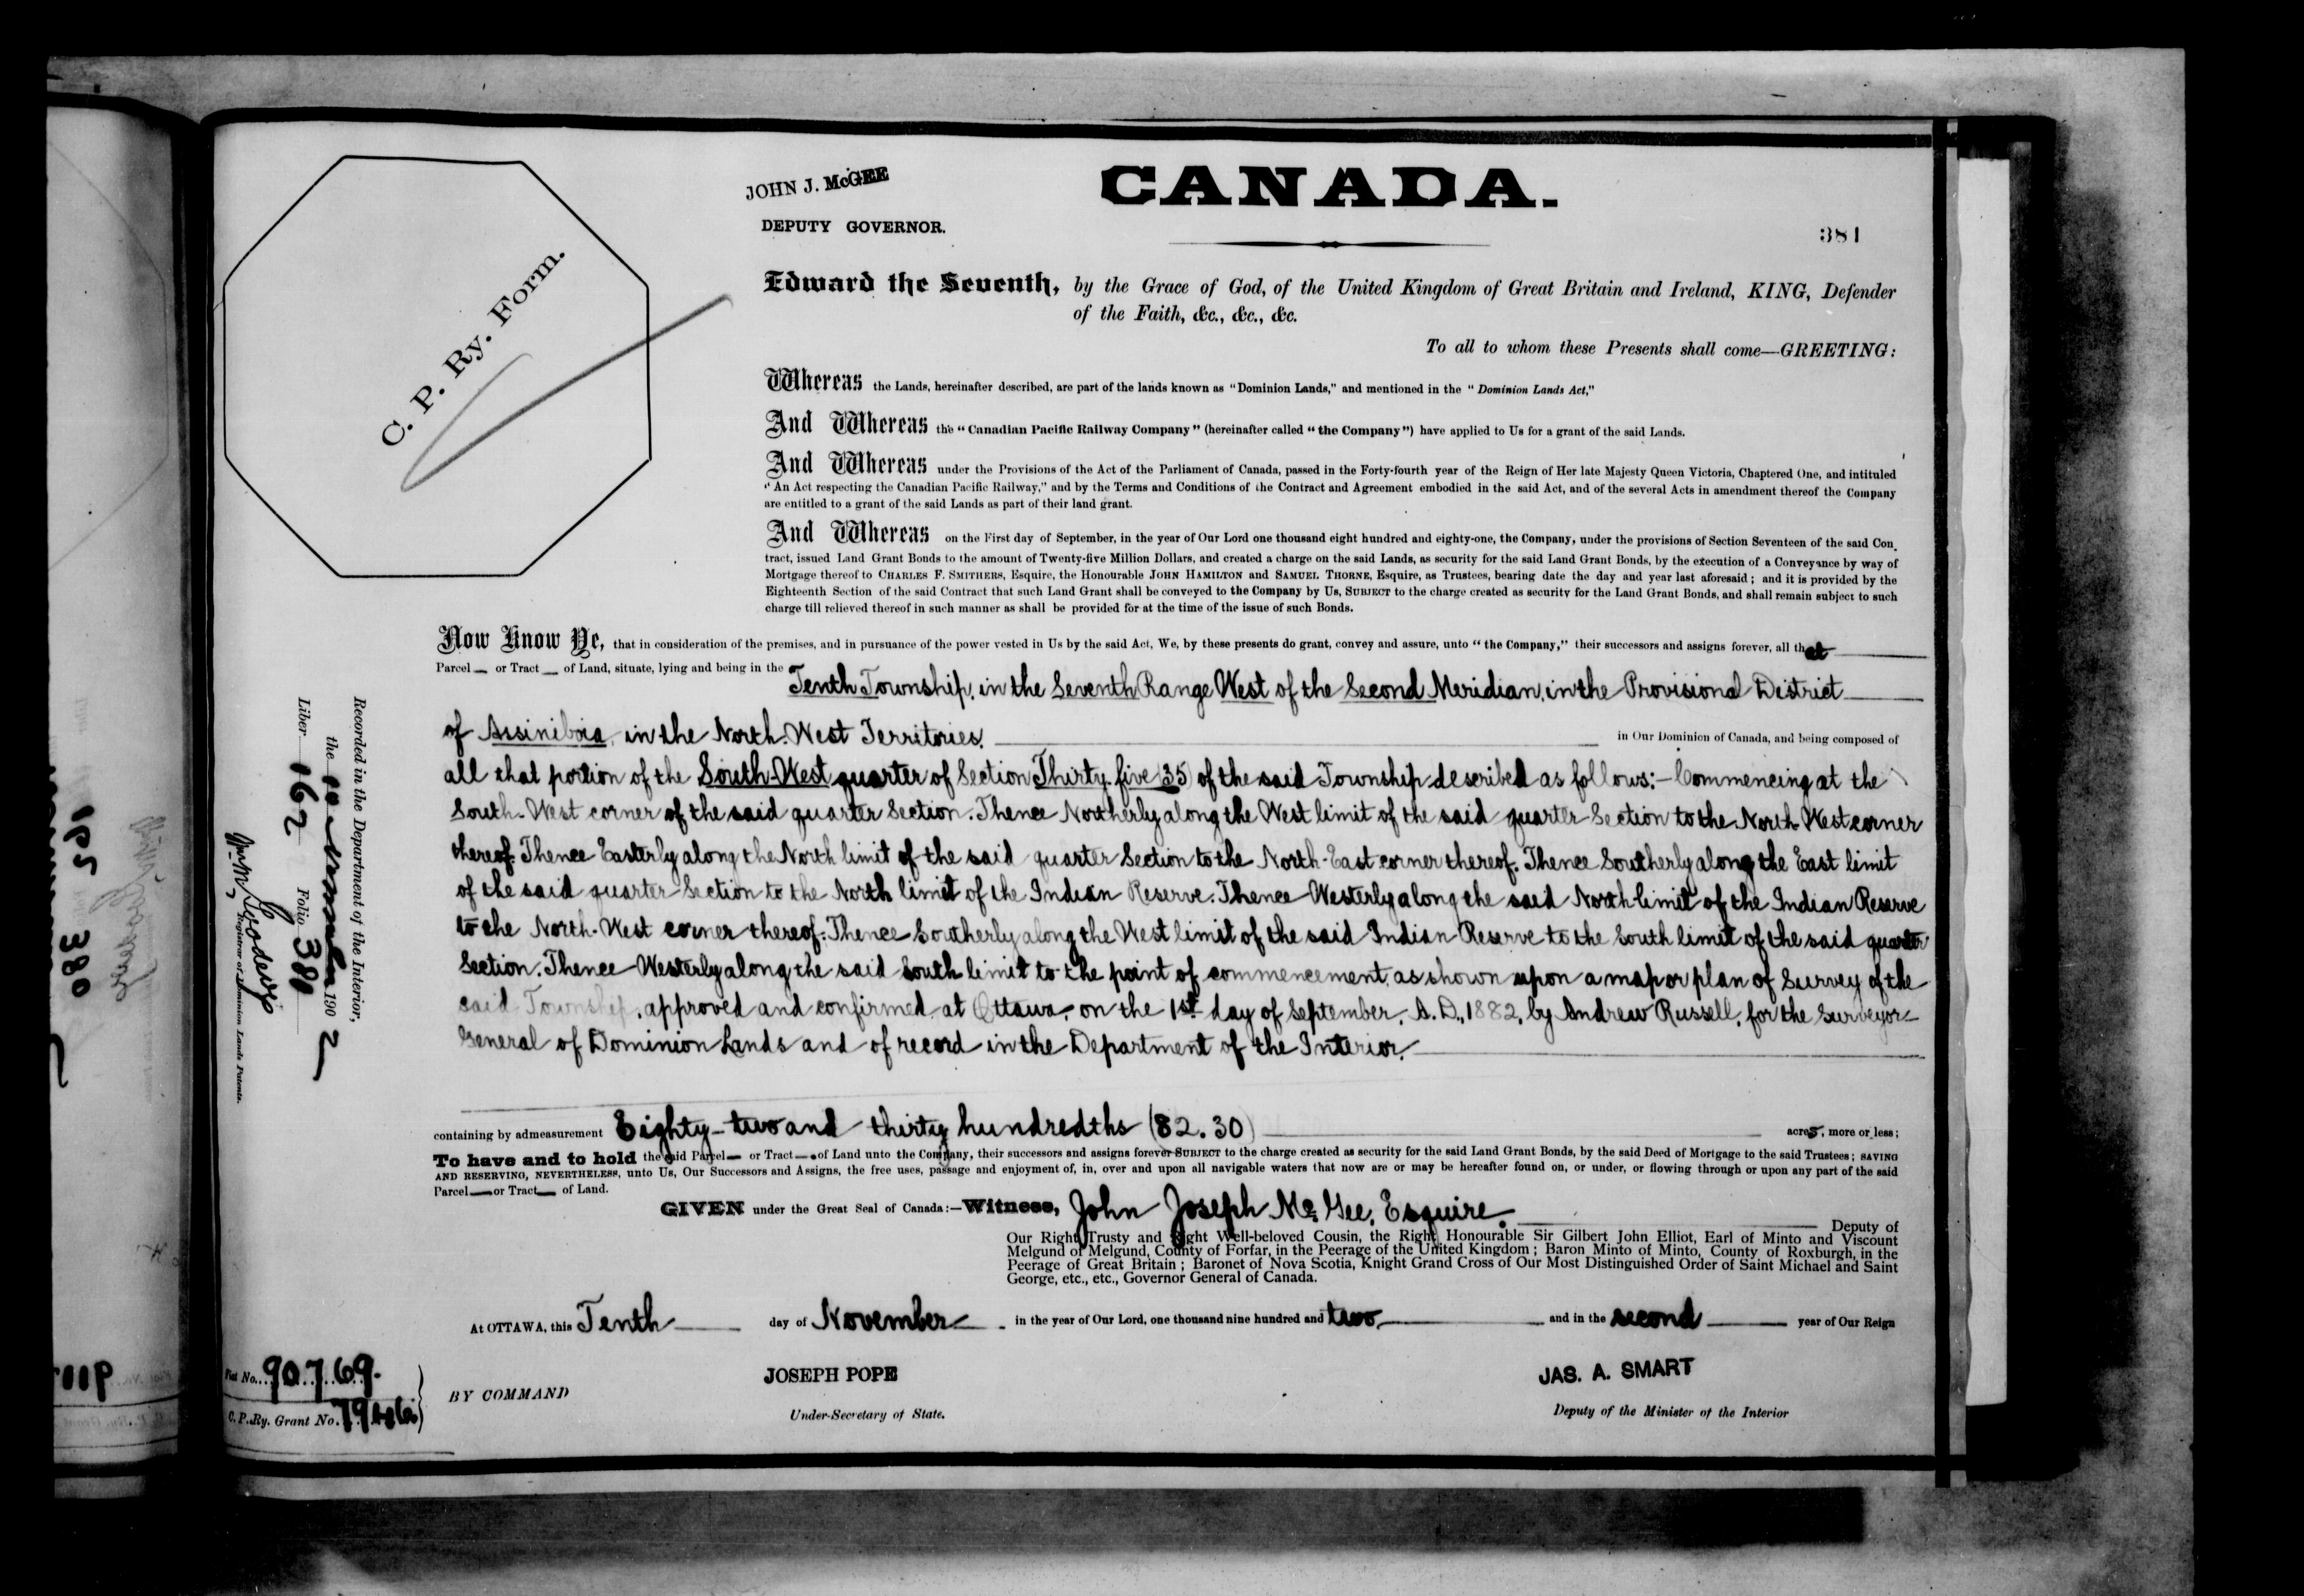 JOHN J. McGEE
DEPUTY GOVERNOR.
CANADA.
381
C. P. Ry. Form.
Edward the Seventh, by the Grace of God, of the United Kingdom of Great Britain and Ireland, KING, Defender
of the Faith, &c., &c., &c.
To all to whom these Presents shall come—GREETING:
Whereas the Lands, hereinafter described, are part of the lands known as "Dominion Lands," and mentioned in the "Dominion Lands Act,"
And Whereas the "Canadian Pacific Railway Company" (hereinafter called "the Company") have applied to Us for a grant of the said Lands.
And Whereas under the Provisions of the Act of the Parliament of Canada, passed in the Forty-fourth year of the Reign of Her late Majesty Queen Victoria, Chaptered One, and intituled
"An Act respecting the Canadian Pacific Railway," and by the Terms and Conditions of the Contract and Agreement embodied in the said Act, and of the several Acts in amendment thereof the Company
are entitled to a grant of the said Lands as part of their land grant.
And Whereas on the First day of September, in the year of Our Lord one thousand eight hundred and eighty-one, the Company, under the provisions of Section Seventeen of the said Con-
tract, issued Land Grant Bonds to the amount of Twenty-five Million Dollars, and created a charge on the said Lands, as security for the said Land Grant Bonds, by the execution of a Conveyance by way of
Mortgage thereof to CHARLES F. SMITHERS, Esquire, the Honourable JOHN HAMILTON and SAMUEL THORNE, Esquire, as Trustees, bearing date the day and year last aforesaid; and it is provided by the
Eighteenth Section of the said Contract that such Land Grant shall be conveyed to the Company by Us, SUBJECT to the charge created as security for the Land Grant Bonds, and shall remain subject to such
charge till relieved thereof in such manner as shall be provided for at the time of the issue of such Bonds.
Now Know Ye, that in consideration of the premises, and in pursuance of the power vested in Us by the said Act, We, by these presents do grant, convey and assure, unto "the Company," their successors and assigns forever, all that
Parcel — or Tract — of Land, situate, lying and being in the
Tenth Township, in the Seventh Range West of the Second Meridian, in the Provisional District
of Assiniboia, in the North-West Territories, in Our Dominion of Canada, and being composed of
all that portion of the South-West quarter of Section Thirty-five (35) of the said Township described as follows:- Commencing at the
South-West corner of the said quarter Section. Thence Northerly along the West limit of the said quarter-Section to the North-West corner
thereof. Thence Easterly along the North limit of the said quarter Section to the North-East corner thereof. Thence Southerly along the East limit
of the said quarter-Section to the North limit of the Indian Reserve. Thence Westerly along the said North limit of the Indian Reserve
to the North-West corner thereof. Thence Southerly along the West limit of the said Indian Reserve to the South limit of the said quarter
Section. Thence Westerly along the said South limit to the point of commencement, as shown upon a map or plan of Survey of the
said Township, approved and confirmed at Ottawa, on the 1st day of September, A.D., 1882, by Andrew Russell, for the Surveyor
General of Dominion Lands and of record in the Department of the Interior.
containing by admeasurement Eighty-two and thirty hundredths (82.30) acres, more or less;
To have and to hold the said Parcel — or Tract — of Land unto the Company, their successors and assigns forever SUBJECT to the charge created as security for the said Land Grant Bonds, by the said Deed of Mortgage to the said Trustees; SAVING
AND RESERVING, NEVERTHELESS, unto Us, Our Successors and Assigns, the free uses, passage and enjoyment of, in, over and upon all navigable waters that now are or may be hereafter found on, or under, or flowing through or upon any part of the said
Parcel — or Tract — of Land.
GIVEN under the Great Seal of Canada:—Witness, John Joseph McGee, Esquire. Deputy of
Our Right Trusty and Right Well-beloved Cousin, the Right Honourable Sir Gilbert John Elliot, Earl of Minto and Viscount
Melgund of Melgund, County of Forfar, in the Peerage of the United Kingdom; Baron Minto of Minto, County of Roxburgh, in the
Peerage of Great Britain; Baronet of Nova Scotia, Knight Grand Cross of Our Most Distinguished Order of Saint Michael and Saint
George, etc., etc., Governor General of Canada.
At OTTAWA, this Tenth day of November in the year of Our Lord, one thousand nine hundred and two and in the second year of Our Reign
BY COMMAND
JOSEPH POPE
Under-Secretary of State.
JAS. A. SMART
Deputy of the Minister of the Interior
Recorded in the Department of the Interior,
the 190 2
Liber 162 Folio 381
Registrar of Dominion Lands Patents.
Fiat No. 90769.
C. P. Ry. Grant No.
195
380